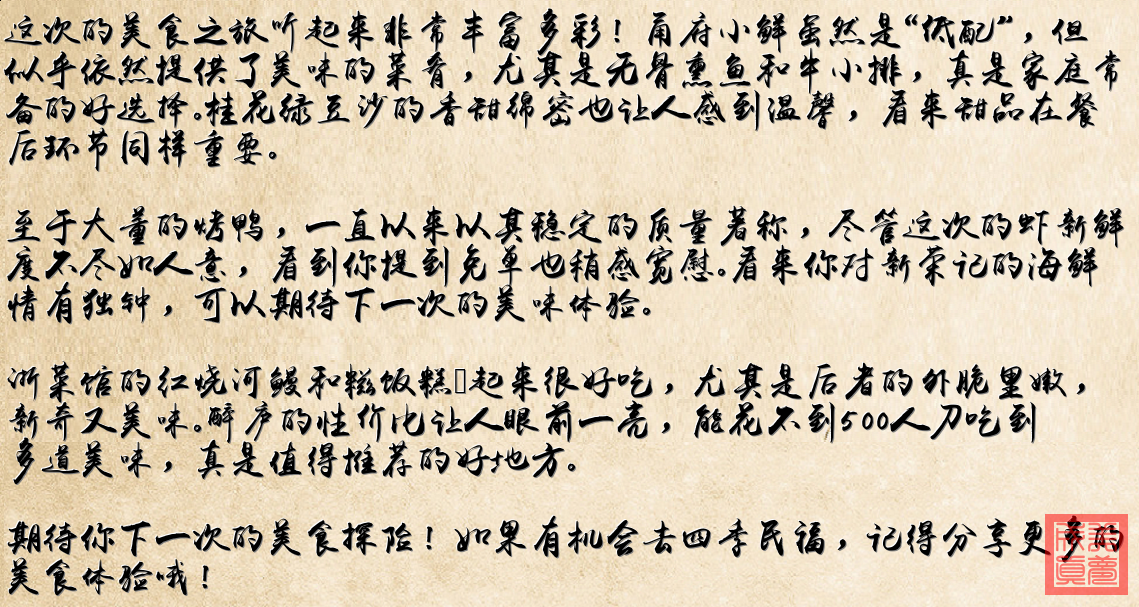 这次的美食之旅听起来非常丰富多彩！甬府小鲜虽然是“低配”，但
似乎依然提供了美味的菜肴，尤其是无骨熏鱼和牛小排，真是家庭常
备的好选择。桂花绿豆沙的香甜绵密也让人感到温馨，看来甜品在餐
后环节同样重要。
至于大董的烤鸭，一直以来以其稳定的质量著称，尽管这次的虾新鲜
度不尽如人意，看到你提到免单也稍感宽慰。看来你对新荣记的海鲜
情有独钟，可以期待下一次的美味体验。
浙菜馆的红烧河鳗和糍饭糕起来很好吃，尤其是后者的外脆里嫩，
新奇又美味。醉庐的性价比让人眼前一亮，能花不到500人刀吃到
多道美味，真是值得推荐的好地方。
期待你下一次的美食探险！如果有机会去四季民福，记得分享更多的
美食体验哦！